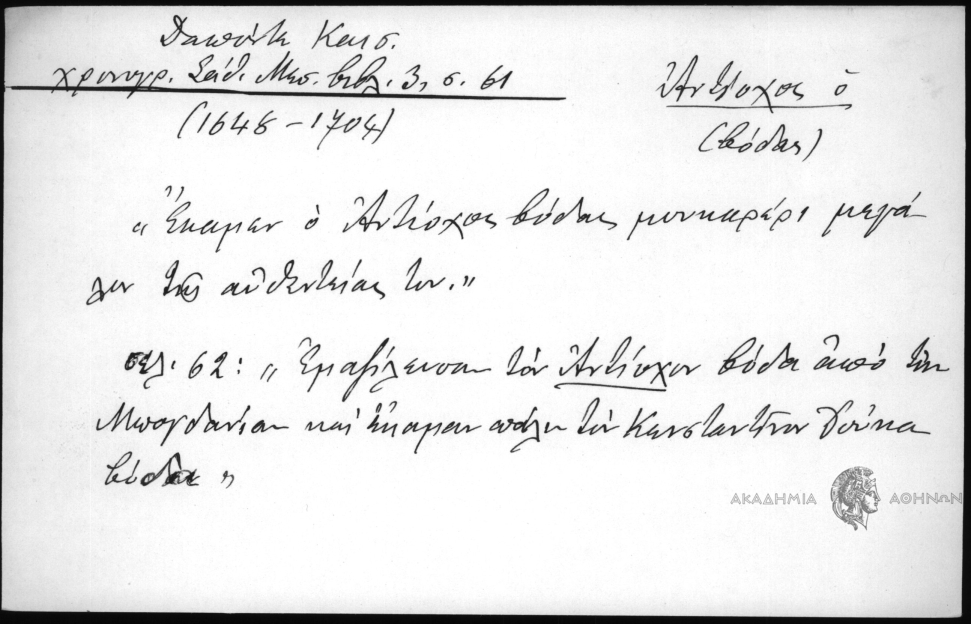 Δαπόντε Κωνσ.
χρονογρ. Σάθ. Μεσ. βιβλ. 3, σ. 61
(1648-1704)
Ἀντίοχος ὁ
(βόδας)
"Ἔκαμεν ὁ Ἀντίοχος βόδας μουκαρέρι μεγά
λον τῆς αὐθεντείας του."
σελ. 62: "Ἐμαζίλευσαν τὸν Ἀντίοχον βόδα ἀπὸ τὴν
Μπογδανίαν καὶ ἔκαμαν πάλιν τὸν Κωνσταντῖνον Δούκα
βόδα"
ΑΚΑΔΗΜΙΑ ΑΘΗΝΩΝ